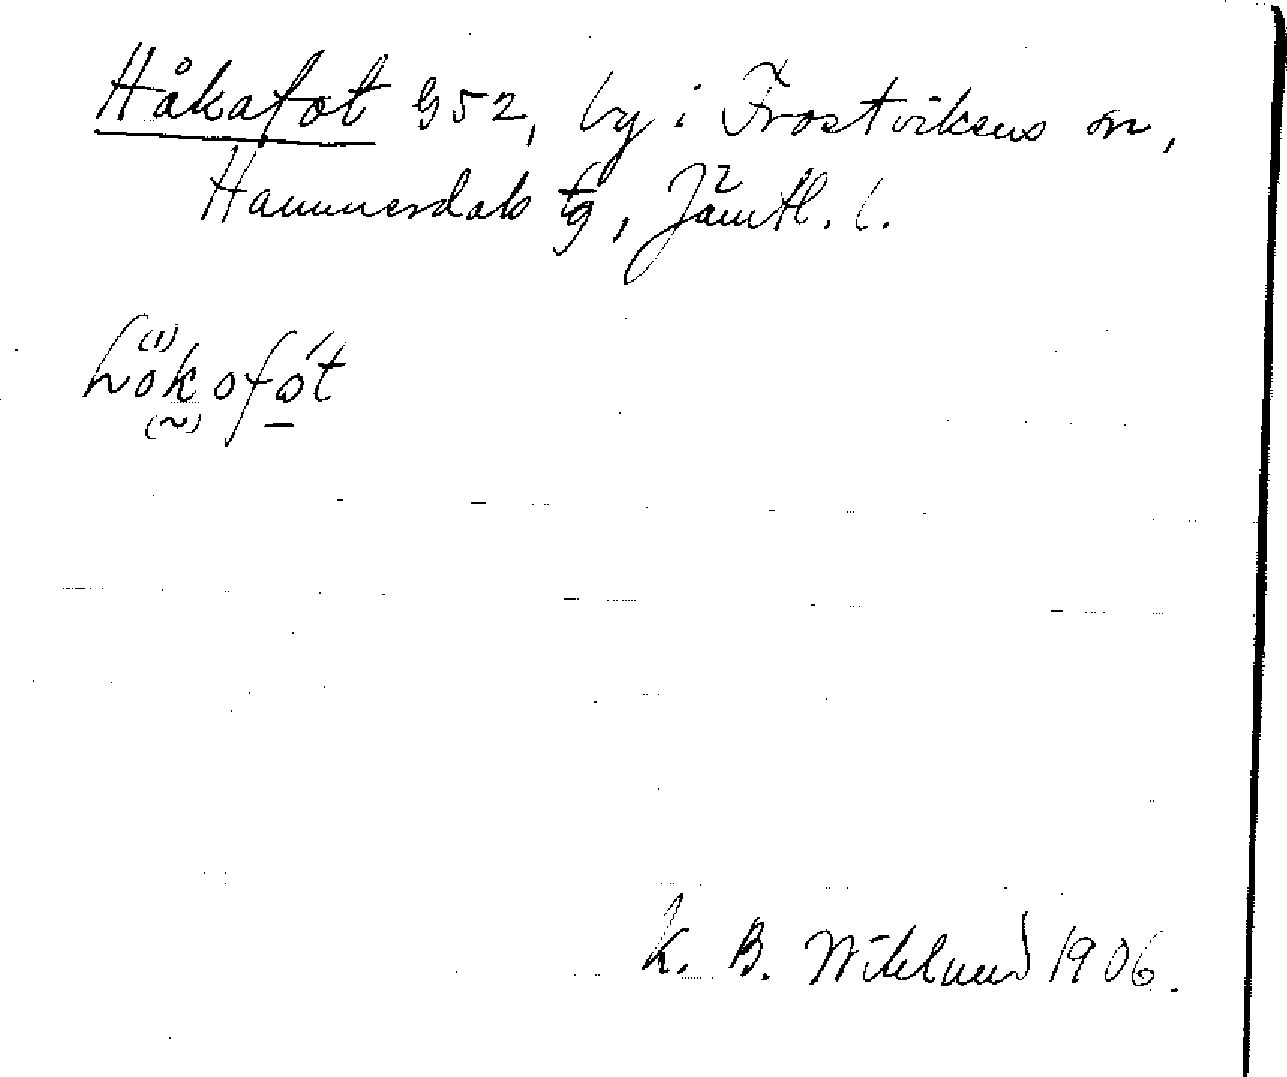 Håkafot G52, by i Frostvikens sn,
Hammerdals tg, Jämtl. l.
hòkofót
K. B. Wiklund 1906.